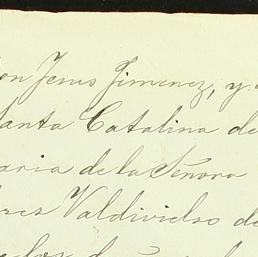 on Jesus Jimenez, y
anta Catalina de
aria de la Señora
res Valdivielso de